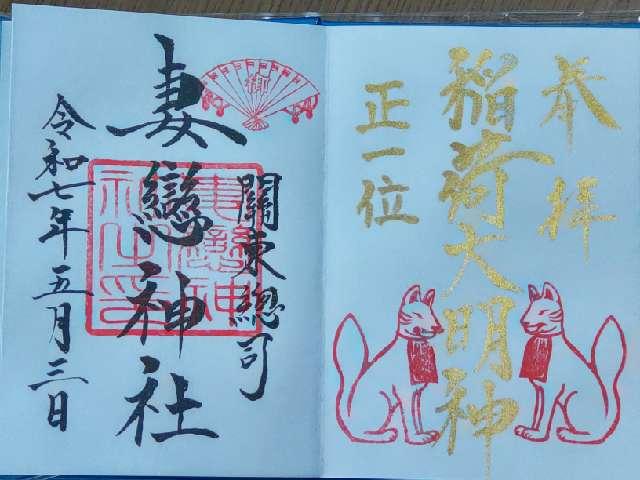 奉拝
稲荷大明神
正一位
關東總司
妻戀神社
令和七年五月三日